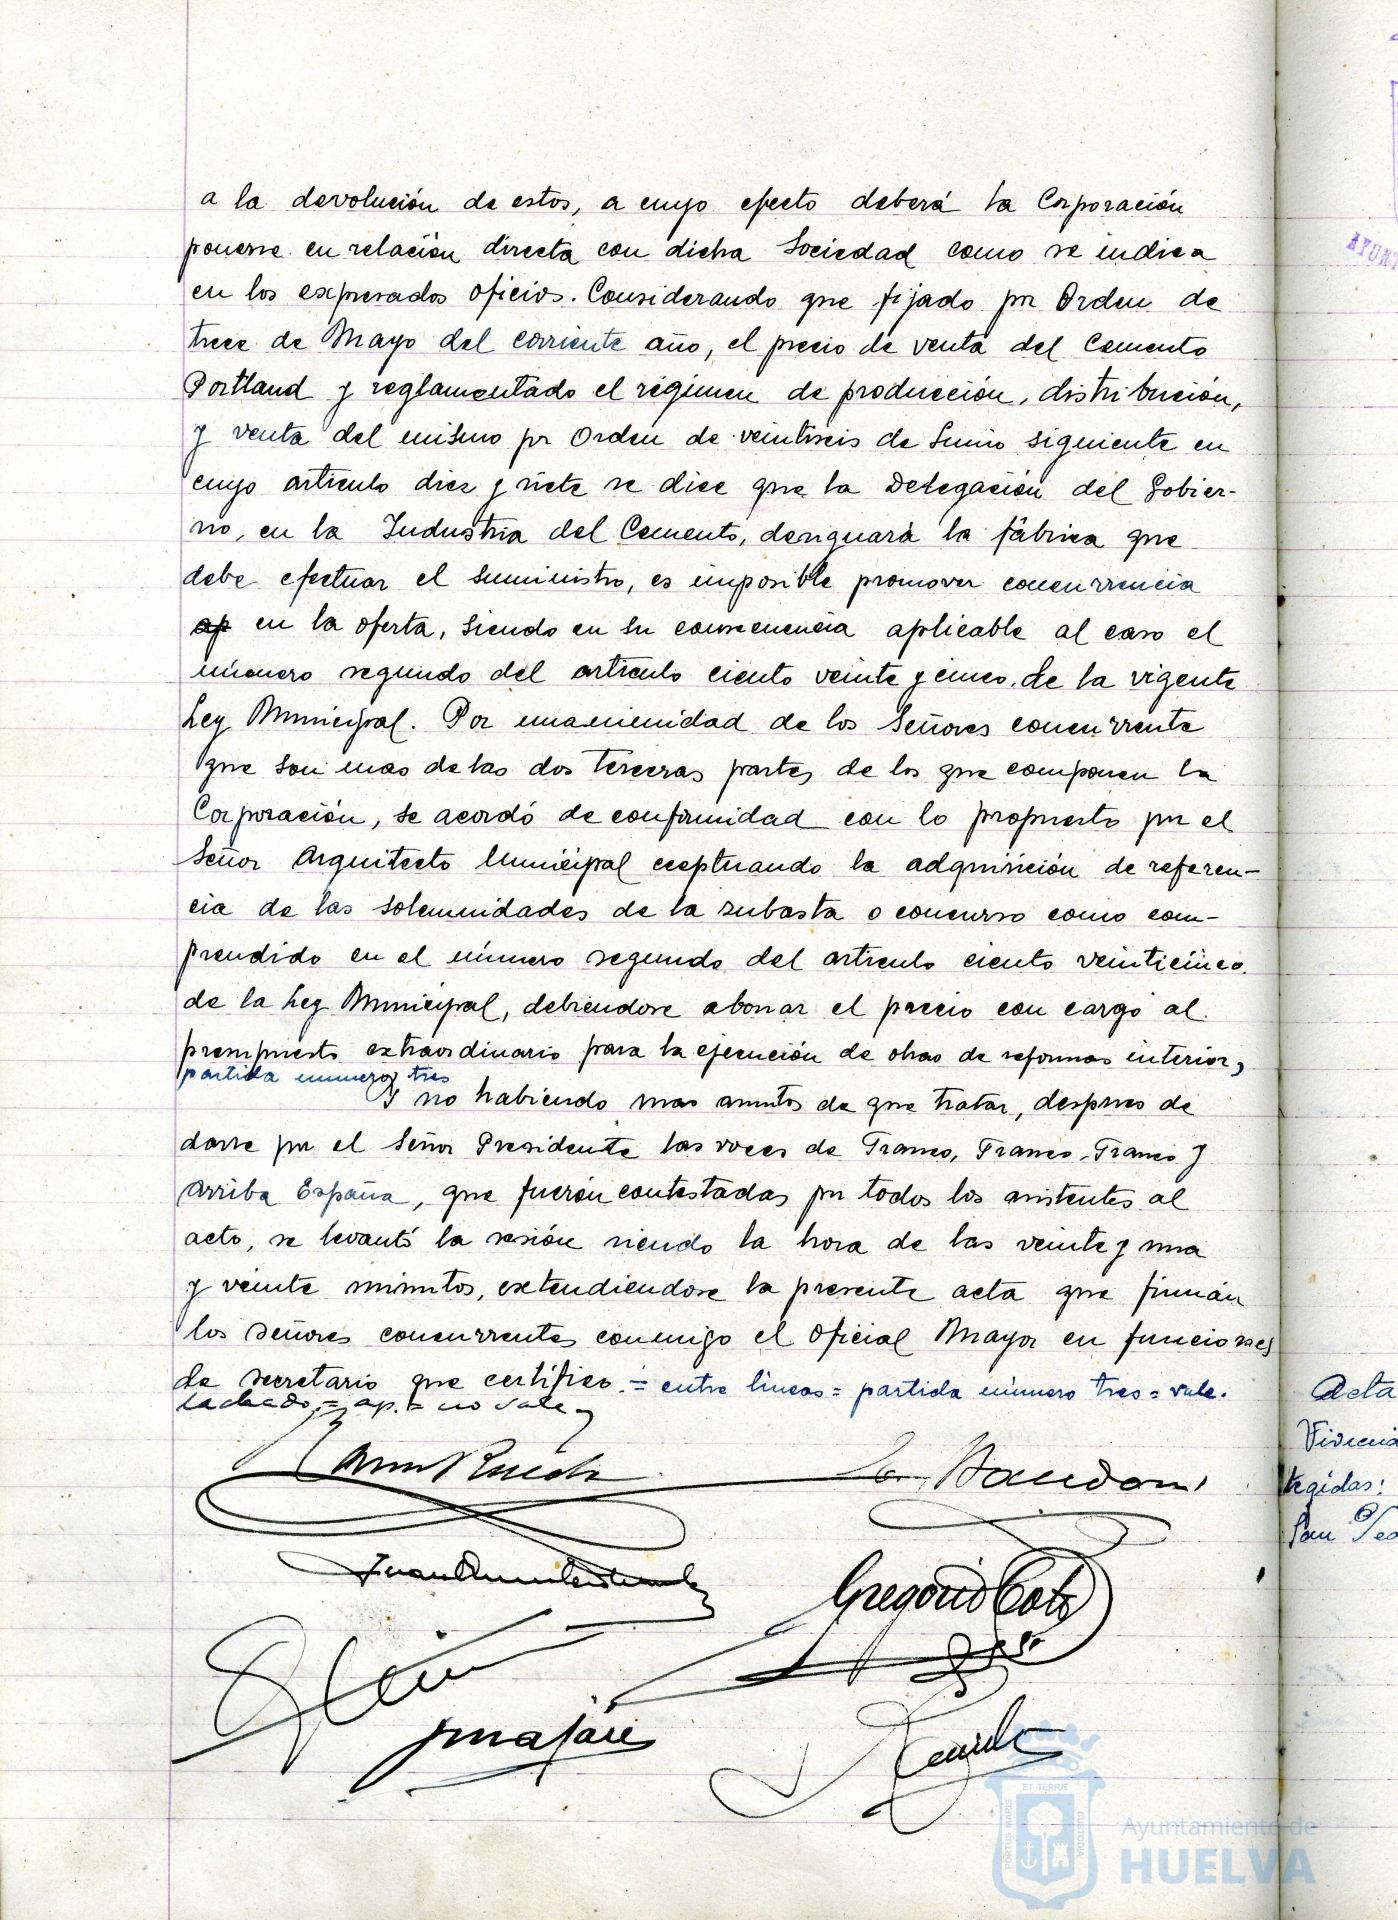 a la devolución de estos, a cuyo efecto deberá la Corporación
ponerse en relación directa con dicha Sociedad como se indica
en los expresados oficios. Considerando que fijado por Orden de
trece de Mayo del corriente año, el precio de venta del Cemento
Portland y reglamentado el régimen de producción, distribución,
y venta del mismo por Orden de veintiseis de Junio siguiente en
cuyo articulo diez y siete se dice que la Delegación del Gobier-
no, en la Industria del Cemento, designará la fábrica que
debe efectuar el suministro, es imposible promover concurrencia
ap en la oferta, siendo en su consecuencia aplicable al caso el
número segundo del articulo ciento veinte y cinco de la vigente
Ley Municipal. Por unanimidad de los Señores concurrente
que son mas de las dos terceras partes de los que componen la
Corporación, se acordó de conformidad con lo propuesto por el
Señor Arquitecto Municipal exceptuando la adquisición de referen-
cia de las solemnidades de la subasta o concurso como com-
prendido en el número segundo del articulo ciento veinticinco
de la Ley Municipal, debiendose abonar el precio con cargo al
presupuesto extraordinario para la ejecución de obras de reformas interior,
partida numero tres
Y no habiendo mas asuntos de que tratar, despues de
darse por el Señor Presidente las voces de Franco, Franco, Franco y
Arriba España, que fuerón contestadas por todos los asistentes al
acto, se levantó la sesión siendo la hora de las veinte y una
y veinte minutos, extendiendose la presente acta que firmán
los señores concurrentes conmigo el Oficial Mayor en funciones
de secretario que certifico. = entre lineas = partida número tres = vale.
tachado = ap. = no vale
Gregorio Coto
AYUNT
Acta
tegidas:
San Pe
ET TERRÆ
PORTUS MARIS
CUSTODIA
Ayuntamiento de
HUELVA